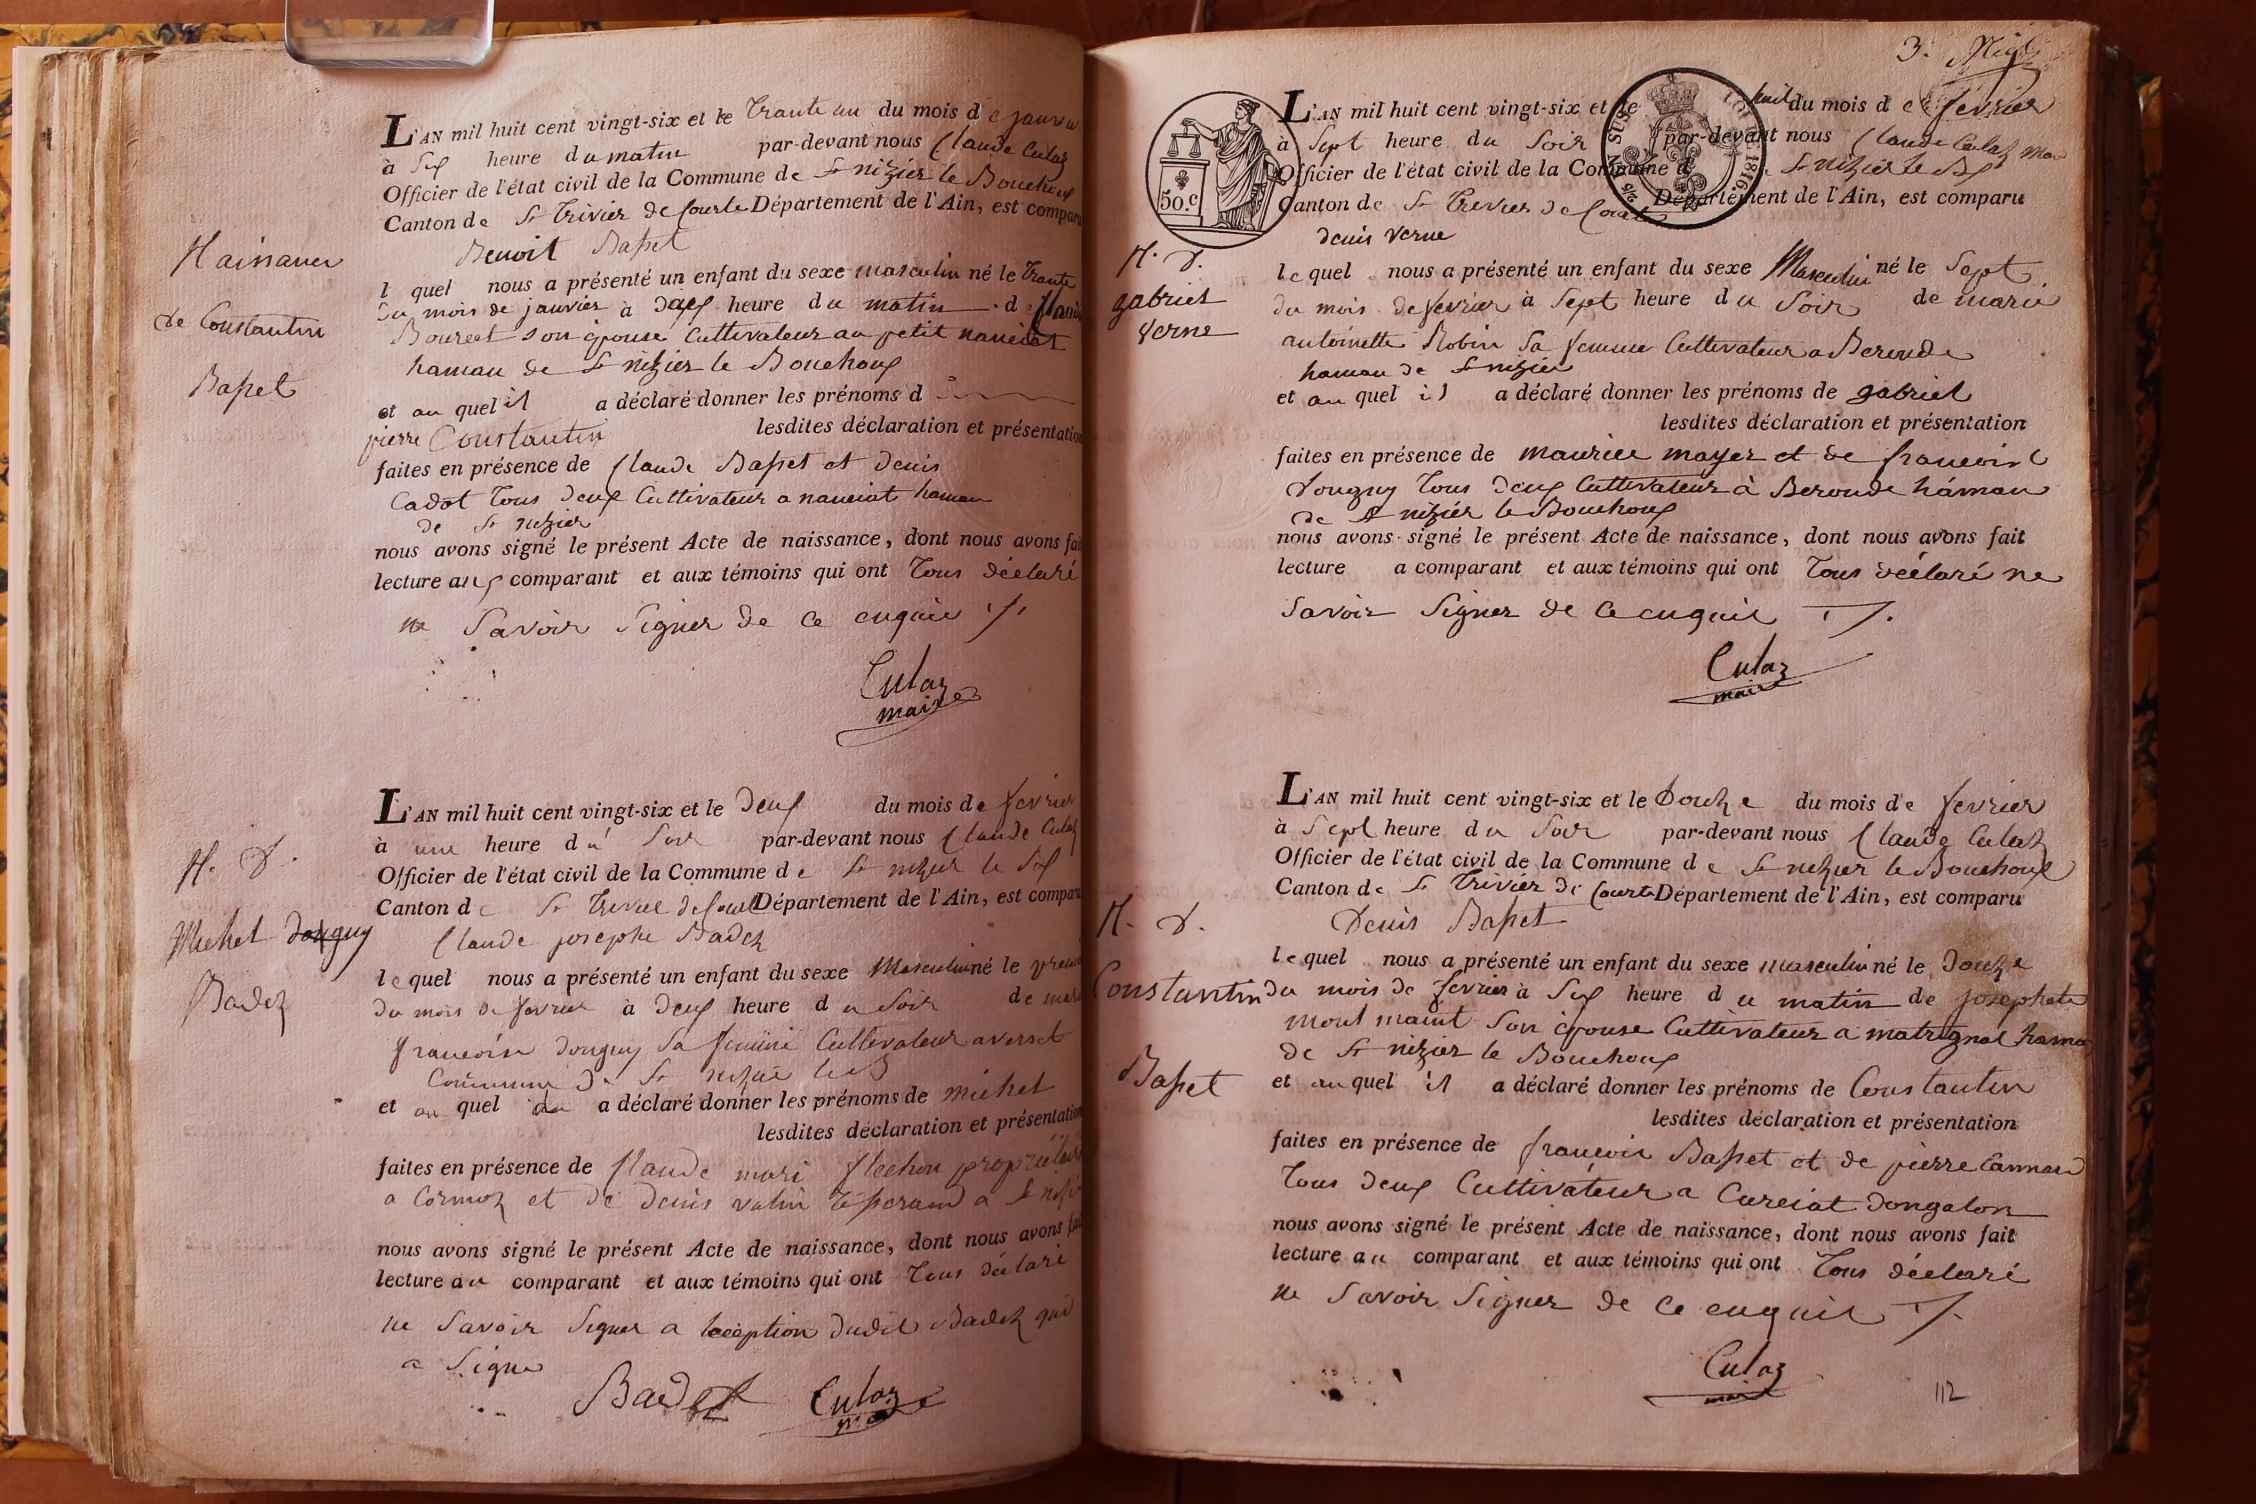 L'AN mil huit cent vingt-six et le trante un du mois de janvier
à six heure du matin par-devant nous Claude Culaz
Officier de l'état civil de la Commune de St nizier le Bouchoux
Canton de St Trivier de Courte Département de l'Ain, est comparu
Benoit Basset
l quel nous a présenté un enfant du sexe masculin né le trante
du mois de janvier à heure du matin d
son epouse Cultivateur au petit nanciat
hamau de St nizier le Bouchoux
et au quel il a déclaré donner les prénoms d
pierre Constantin lesdites déclaration et présentation
faites en présence de Claude Basset et denis
Cadot tous deux Cultivateur a nanciat hamau
de St nizier
nous avons signé le présent Acte de naissance, dont nous avons fait
lecture aux comparant et aux témoins qui ont tous déclaré
ne Savoir Signer de ce enquis
Culaz
maire
Naisance
de Constantin
Basset
L'AN mil huit cent vingt-six et le deux du mois de fevrier
à une heure du Soir par-devant nous Claude Culaz
Officier de l'état civil de la Commune de St nizier le
Canton de St Département de l'Ain, est comparu
Claude josephe Badez
le quel nous a présenté un enfant du sexe Masculin né le
du mois de fevrier à deux heure du Soir de
francoise donguy Sa femme Cultivateur a
Commune de St
et au quel a déclaré donner les prénoms de michel
lesdites déclaration et présentation
faites en présence de Claude mari
a Cormoz et de denis a
nous avons signé le présent Acte de naissance, dont nous avons fait
lecture au comparant et aux témoins qui ont tous déclaré
ne Savoir Signer a leception dudit Badez qui
a Signe
Badez Culaz
N. D.
Michel donguy
Badez
3.
50.c
L'AN mil huit cent vingt-six et le huit du mois de fevrier
à Sept heure du Soir par-devant nous Claude Culaz
Officier de l'état civil de la Commune d St nizier le
Canton de St Département de l'Ain, est comparu
denis verne
le quel nous a présenté un enfant du sexe Masculin né le Sept
du mois de fevrier à Sept heure du Soir de marie
antoinette Robin Sa femme Cultivateur a Beroude
hamau de St nizier
et au quel il a déclaré donner les prénoms de gabriel
lesdites déclaration et présentation
faites en présence de maurice mayer et de francois
donguy tous deux Cultivateur à Beroude hamau
de St nizier le Bouchoux
nous avons signé le présent Acte de naissance, dont nous avons fait
lecture a comparant et aux témoins qui ont tous déclaré ne
Savoir Signer de ce enquis
Culaz
maire
N. D.
gabriel
verne
L'AN mil huit cent vingt-six et le douze du mois de fevrier
à Sept heure du Soir par-devant nous Claude Culaz
Officier de l'état civil de la Commune de St nizier le Bouchoux
Canton de St Trivier de Courte Département de l'Ain, est comparu
Denis Basset
le quel nous a présenté un enfant du sexe masculin né le douze
du mois de fevrier à Six heure du matin de josephete
Son epouse Cultivateur a hamau
de St nizier le Bouchoux
et au quel il a déclaré donner les prénoms de Constantin
lesdites déclaration et présentation
faites en présence de francois Basset et de pierre Cannard
tous deux Cultivateur a Curciat dongalon
nous avons signé le présent Acte de naissance, dont nous avons fait
lecture au comparant et aux témoins qui ont tous déclaré
ne Savoir Signer de ce enquis
Culaz
maire
N. D.
Constantin
Basset
112